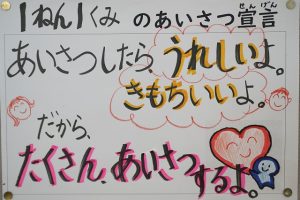 1ねん1くみ のあいさつ宣言
せんげん
あいさつしたら、うれしいよ。
きもちいいよ。
だから、
たくさん、あいさつするよ。